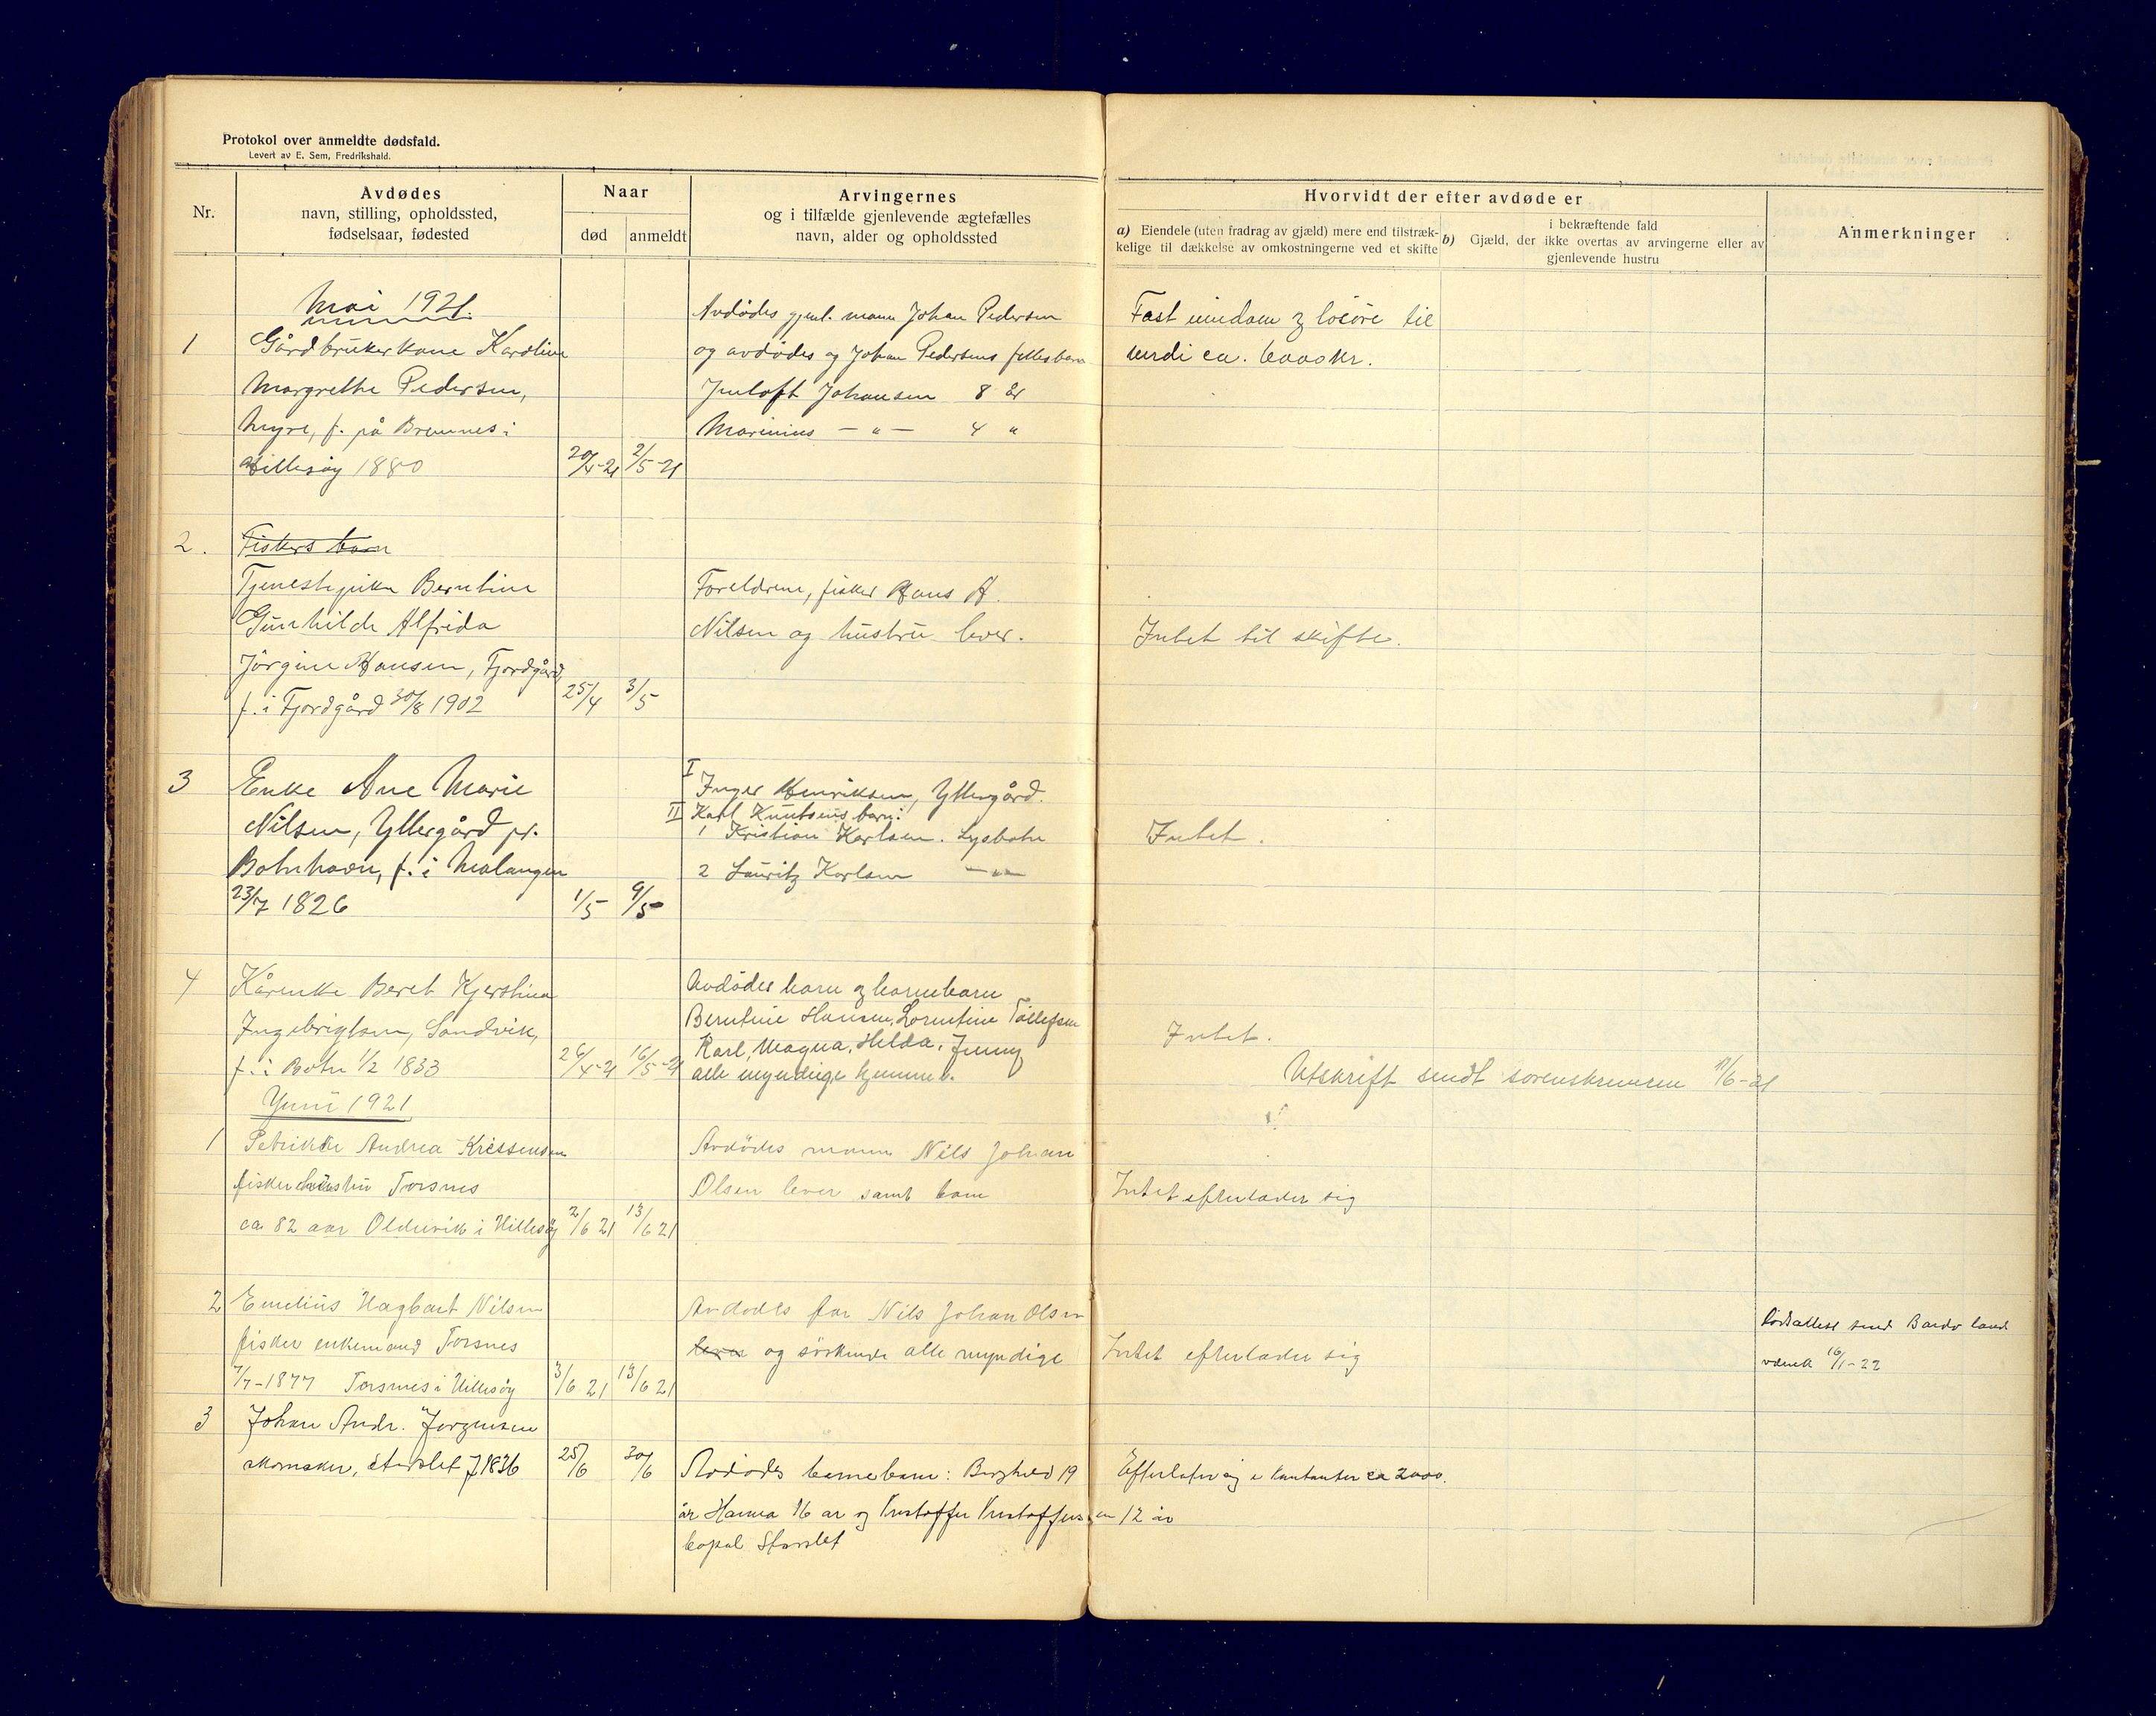 Protokol over anmeldte dødsfald.
Levert av E. Sem, Fredrikshald.
Nr.
Avdødes
navn, stilling, opholdssted,
fødselsaar, fødested
Naar
død
anmeldt
Arvingernes
og i tilfælde gjenlevende ægtefælles
navn, alder og opholdssted
Hvorvidt der efter avdøde er
a) Eiendele (uten fradrag av gjæld) mere end tilstræk-
kelige til dækkelse av omkostningerne ved et skifte
i bekræftende fald
b) Gjæld, der ikke overtas av arvingerne eller av
gjenlevende hustru
Anmerkninger
Mai 1921.
1 Gårdbrukerkone Karoline
Margrethe Pedersen,
Myre, f. på Bremnes i
Hillesøy 1880
20/4-21 2/5-21
Avdødes gjenl. mann Johan Pedersen
og avdødes og Johan Pedersens fellesbarn
Johansen 8 år
Marinius -"- 4 "
Fast eiendom og løsøre til
verdi ca. 6000 kr.
2. Fiskers barn
Tjenestepike Berntine
Gunhilde Alfrida
Jörgine Hansen, Fjordgård,
f. i Fjordgård 30/8 1902
25/4 3/5
Foreldrene, fisker Hans A.
Nilsen og hustru lever.
Intet til skifte.
3 Enke Ane Marie
Nilsen, Yttergård pr.
Botnhavn, f. i Malangen
23/7 1826
1/5 9/5
I Inger Henriksen, Yttergård.
II Karl Knutsens barn:
1 Kristian Karlsen. Lysbotn
2 Lauritz Karlsen -"-
Intet.
4 Kårenke Beret Kjerstina
Ingebrigtsen, Sandvik,
f. i Botn 1/2 1833
26/4-21 16/5-21
Avdödes barn og barnebarn
Berntine Hansen, Lorentine Tollefsen
Karl, Magna, Helda, Jenny
alle myndige hjemme.
Intet.
Utskrift sendt sorenskriveren 11/6-21
Juni 1921
1 Petrikke Andrea Kristensen
fisker hustru Torsnes
ca 82 aar Oldervik i Hillesøy
2/6 21 13/6 21
Avdödes mann Nils Johan
Olsen lever samt barn
Intet efterlader sig
2 Emelius Hagbart Nilsen
fisker enkemand Torsnes
7/7-1877 Torsnes i Hillesøy
3/6 21 13/6 21
Avdödes far Nils Johan Olsen
lever og söskende alle myndige
Intet efterlader sig
Dödsattest send Bardo
16/1-22
3 Johan Andr. Jörgensen
skomaker, Storslet f 1836
25/6 30/6
Avdödes barnebarn: Borghild 19
år Hanna 16 ar og Kristoffer Kristoffersen 12 år
bopæl Storslet
Efterlater sig i kontanter ca 2000.